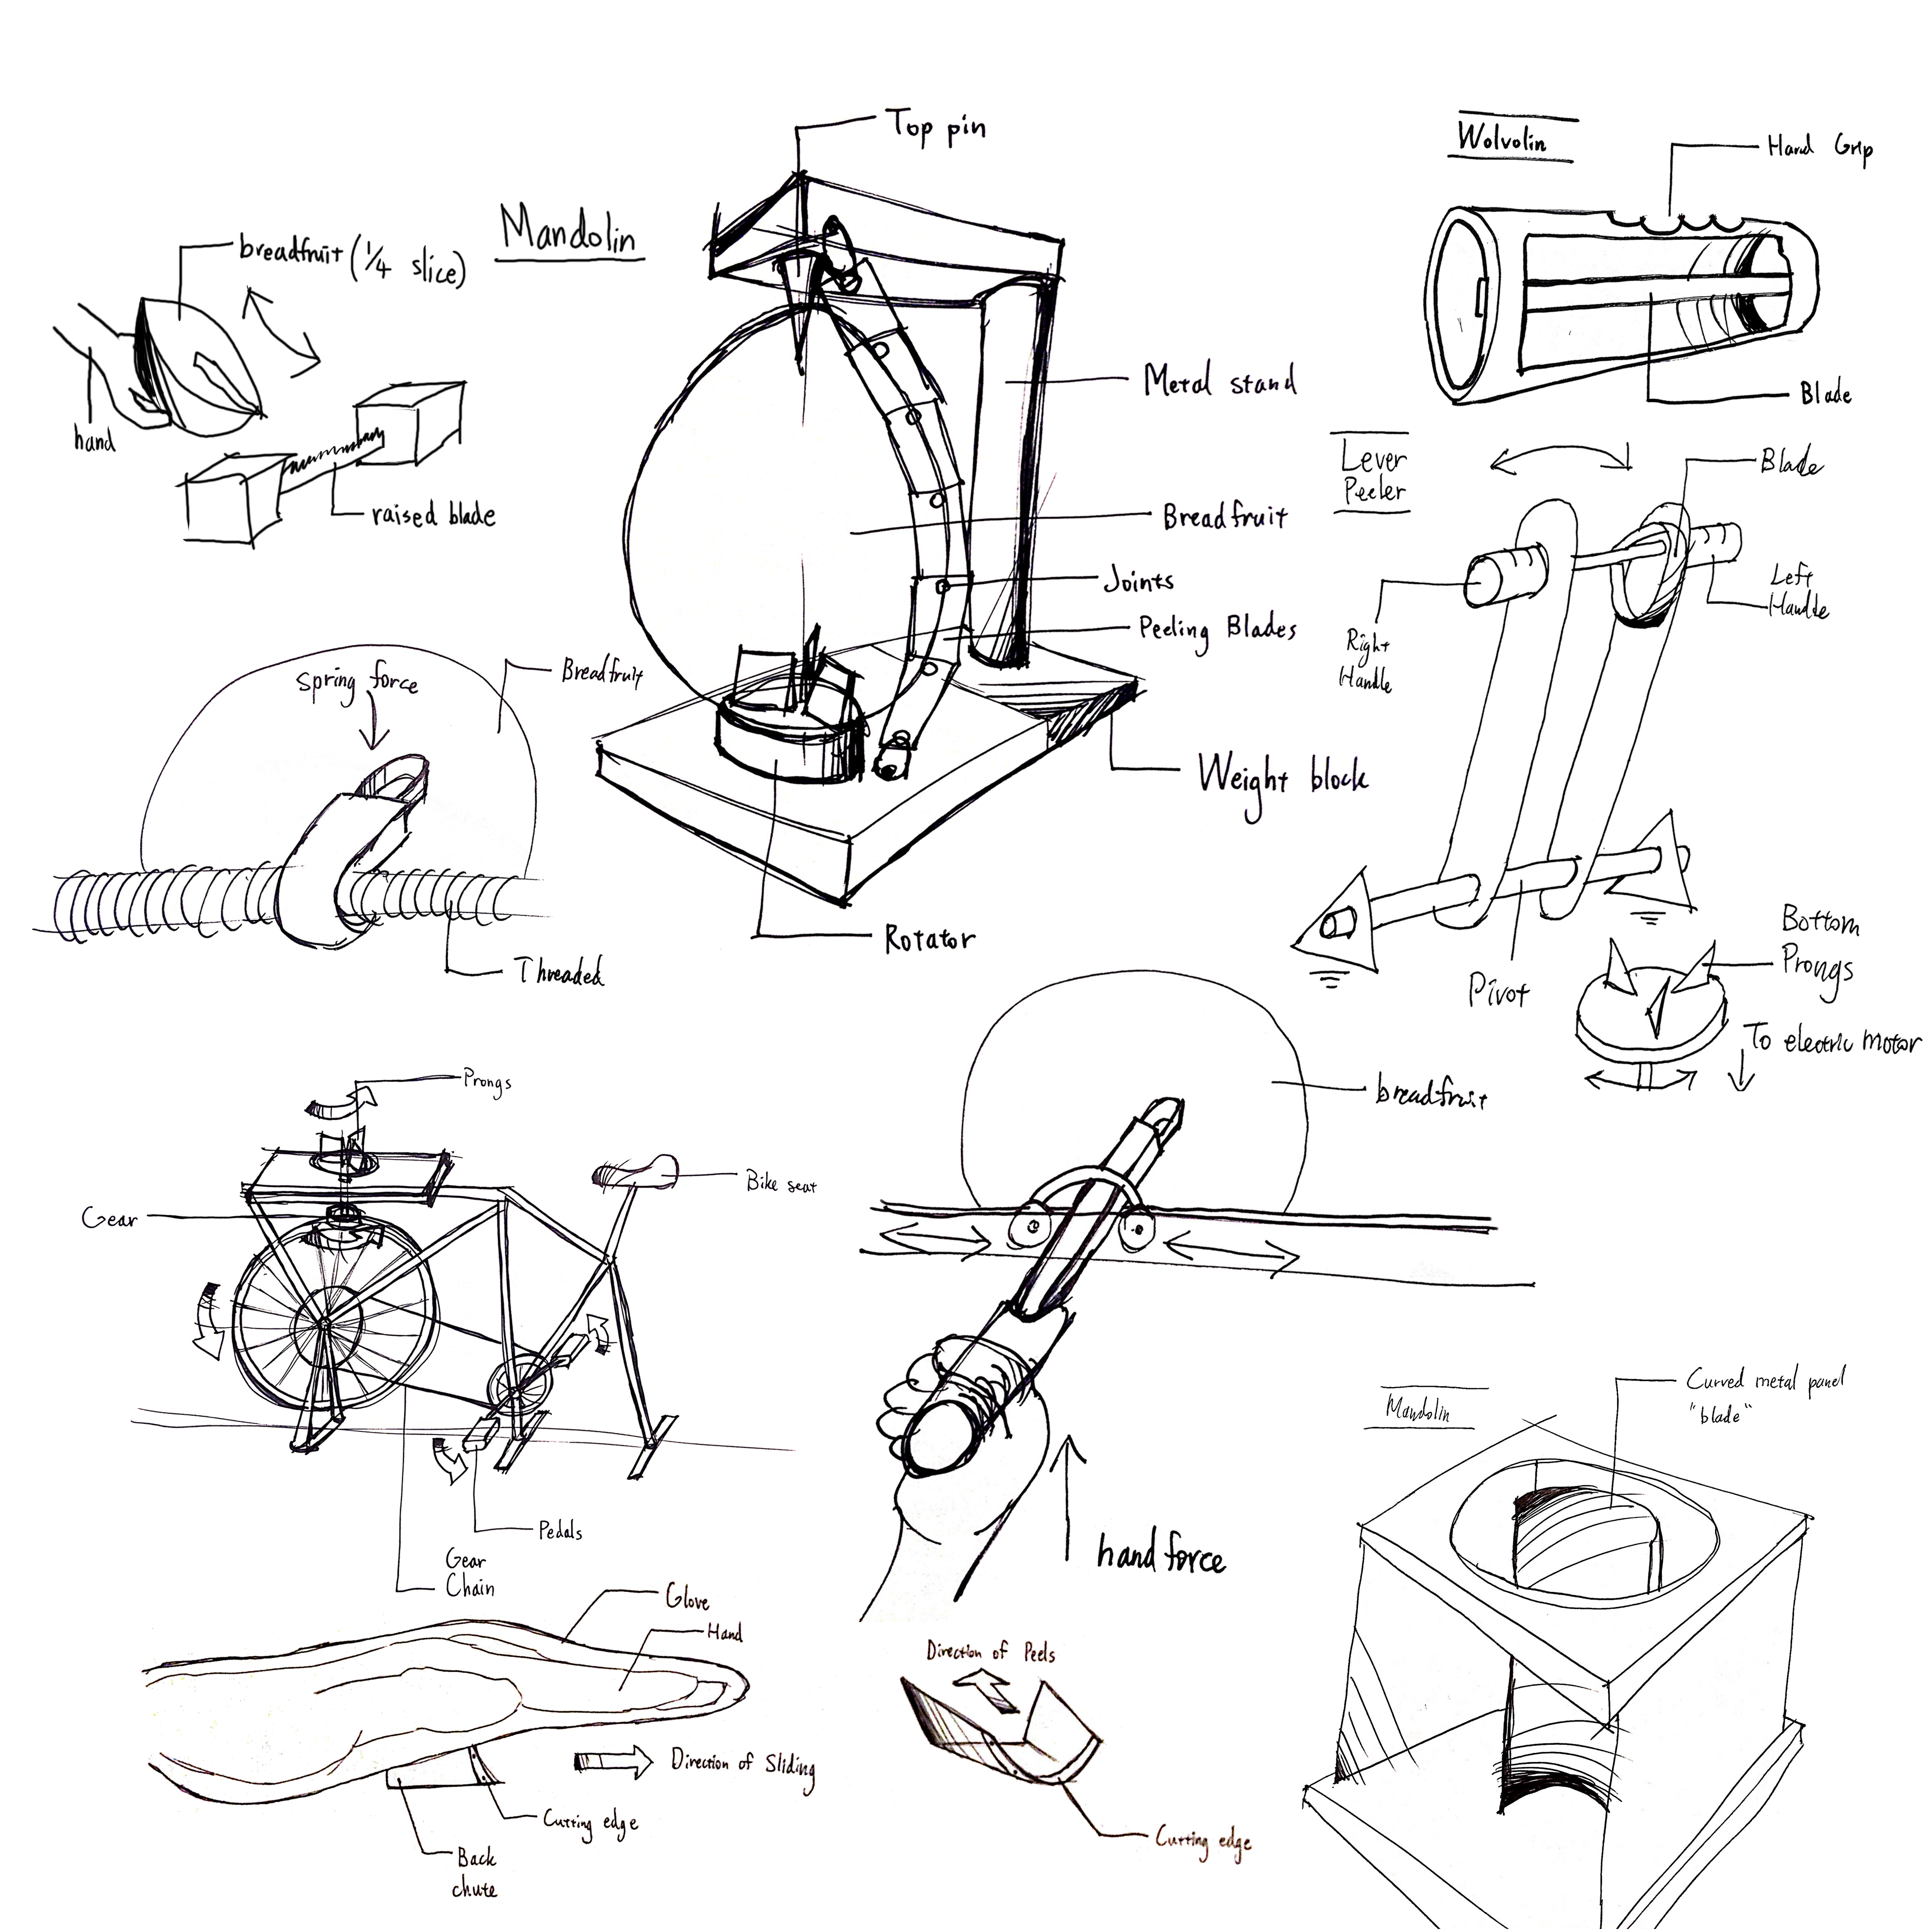 Mandolin
breadfruit (1/4 slice)
hand
raised blade
Top pin
Metal stand
Breadfruit
Joints
Peeling Blades
Weight block
Rotator
Wolvolin
Hand Grip
Blade
Lever
Peeler
Blade
Left
Handle
Right
Handle
Pivot
Bottom
Prongs
To electric motor
Spring force
Breadfruit
Threaded
Prongs
Bike seat
Gear
Pedals
Gear
Chain
breadfruit
hand force
Mandolin
Curved metal panel
"blade"
Glove
Hand
Direction of Sliding
Cutting edge
Back
chute
Direction of Peels
Cutting edge